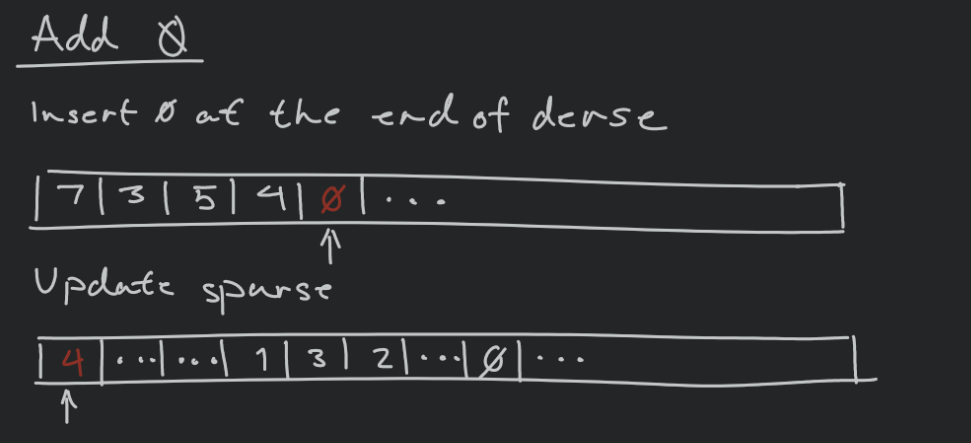 Add 0
Insert 0 at the end of dense
7 | 3 | 5 | 4 | 0 | ...
Update sparse
4 | ... | ... | 1 | 3 | 2 | ... | 0 | ...